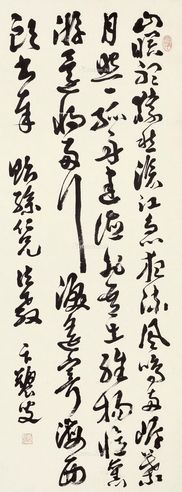 山暝聽猿愁滄江急夜流風鳴兩岸葉
月照一孤舟建德非吾土維揚憶舊
游還將兩行淚遙寄海西
頭書奉 仁兄法教